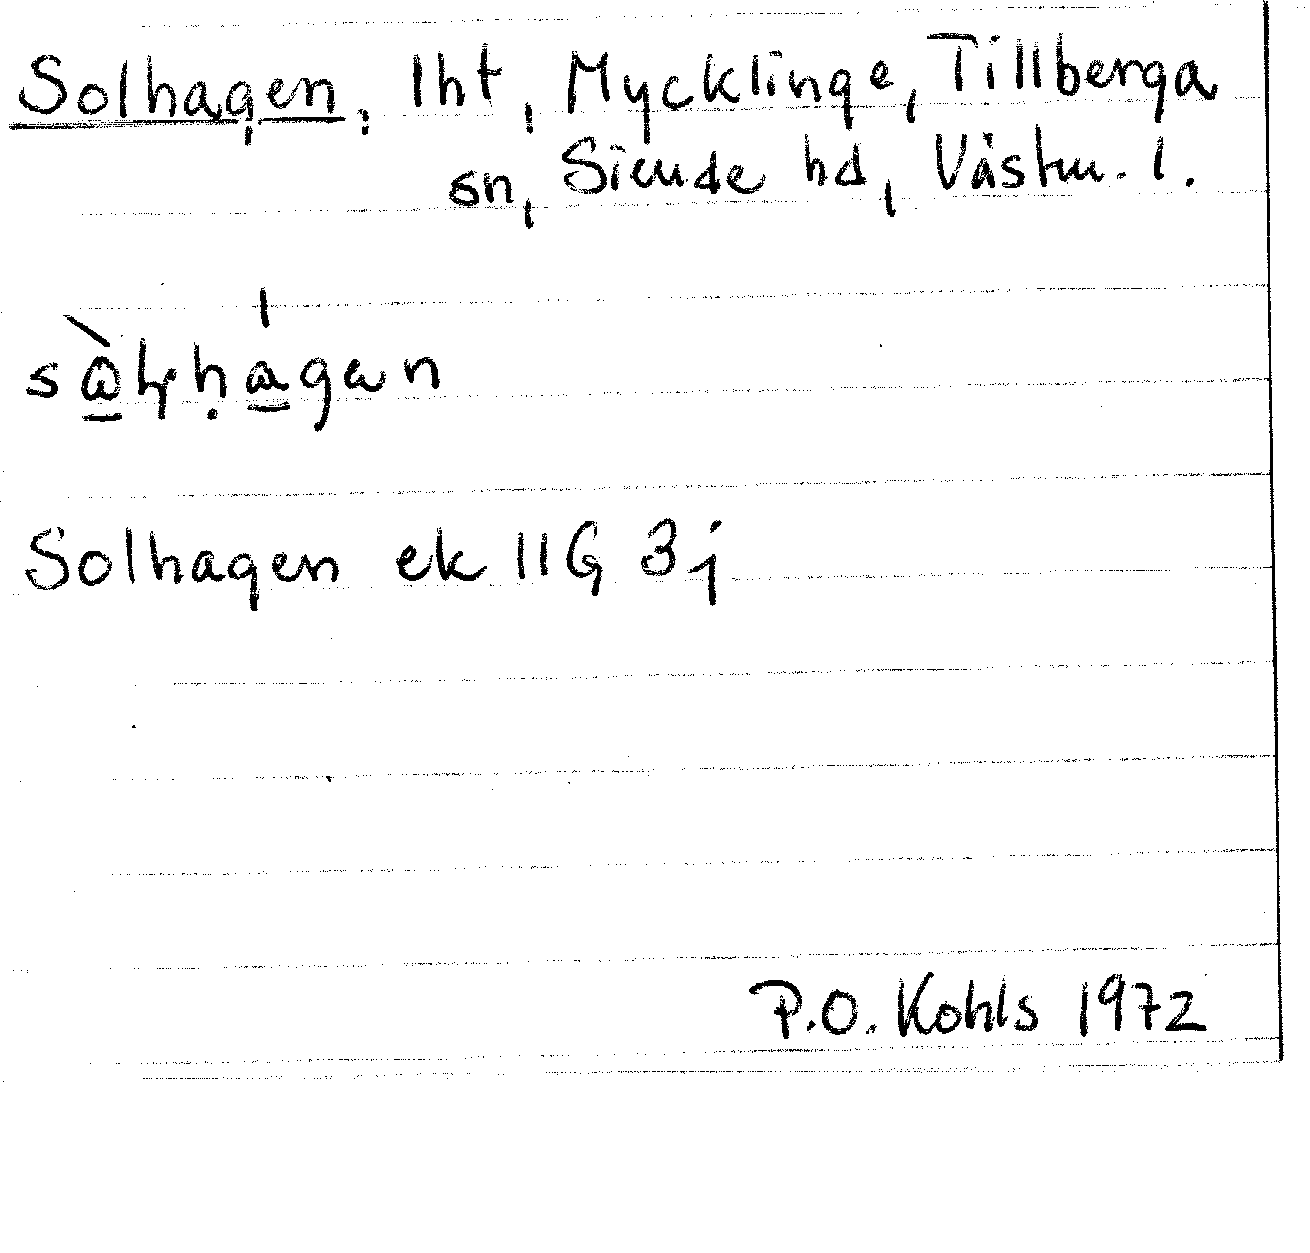 Solhagen, lht, Mycklinge, Tillberga
sn, Siende hd, Västm. l.
Solhagen ek 11G 3j
P.O. Kohls 1972